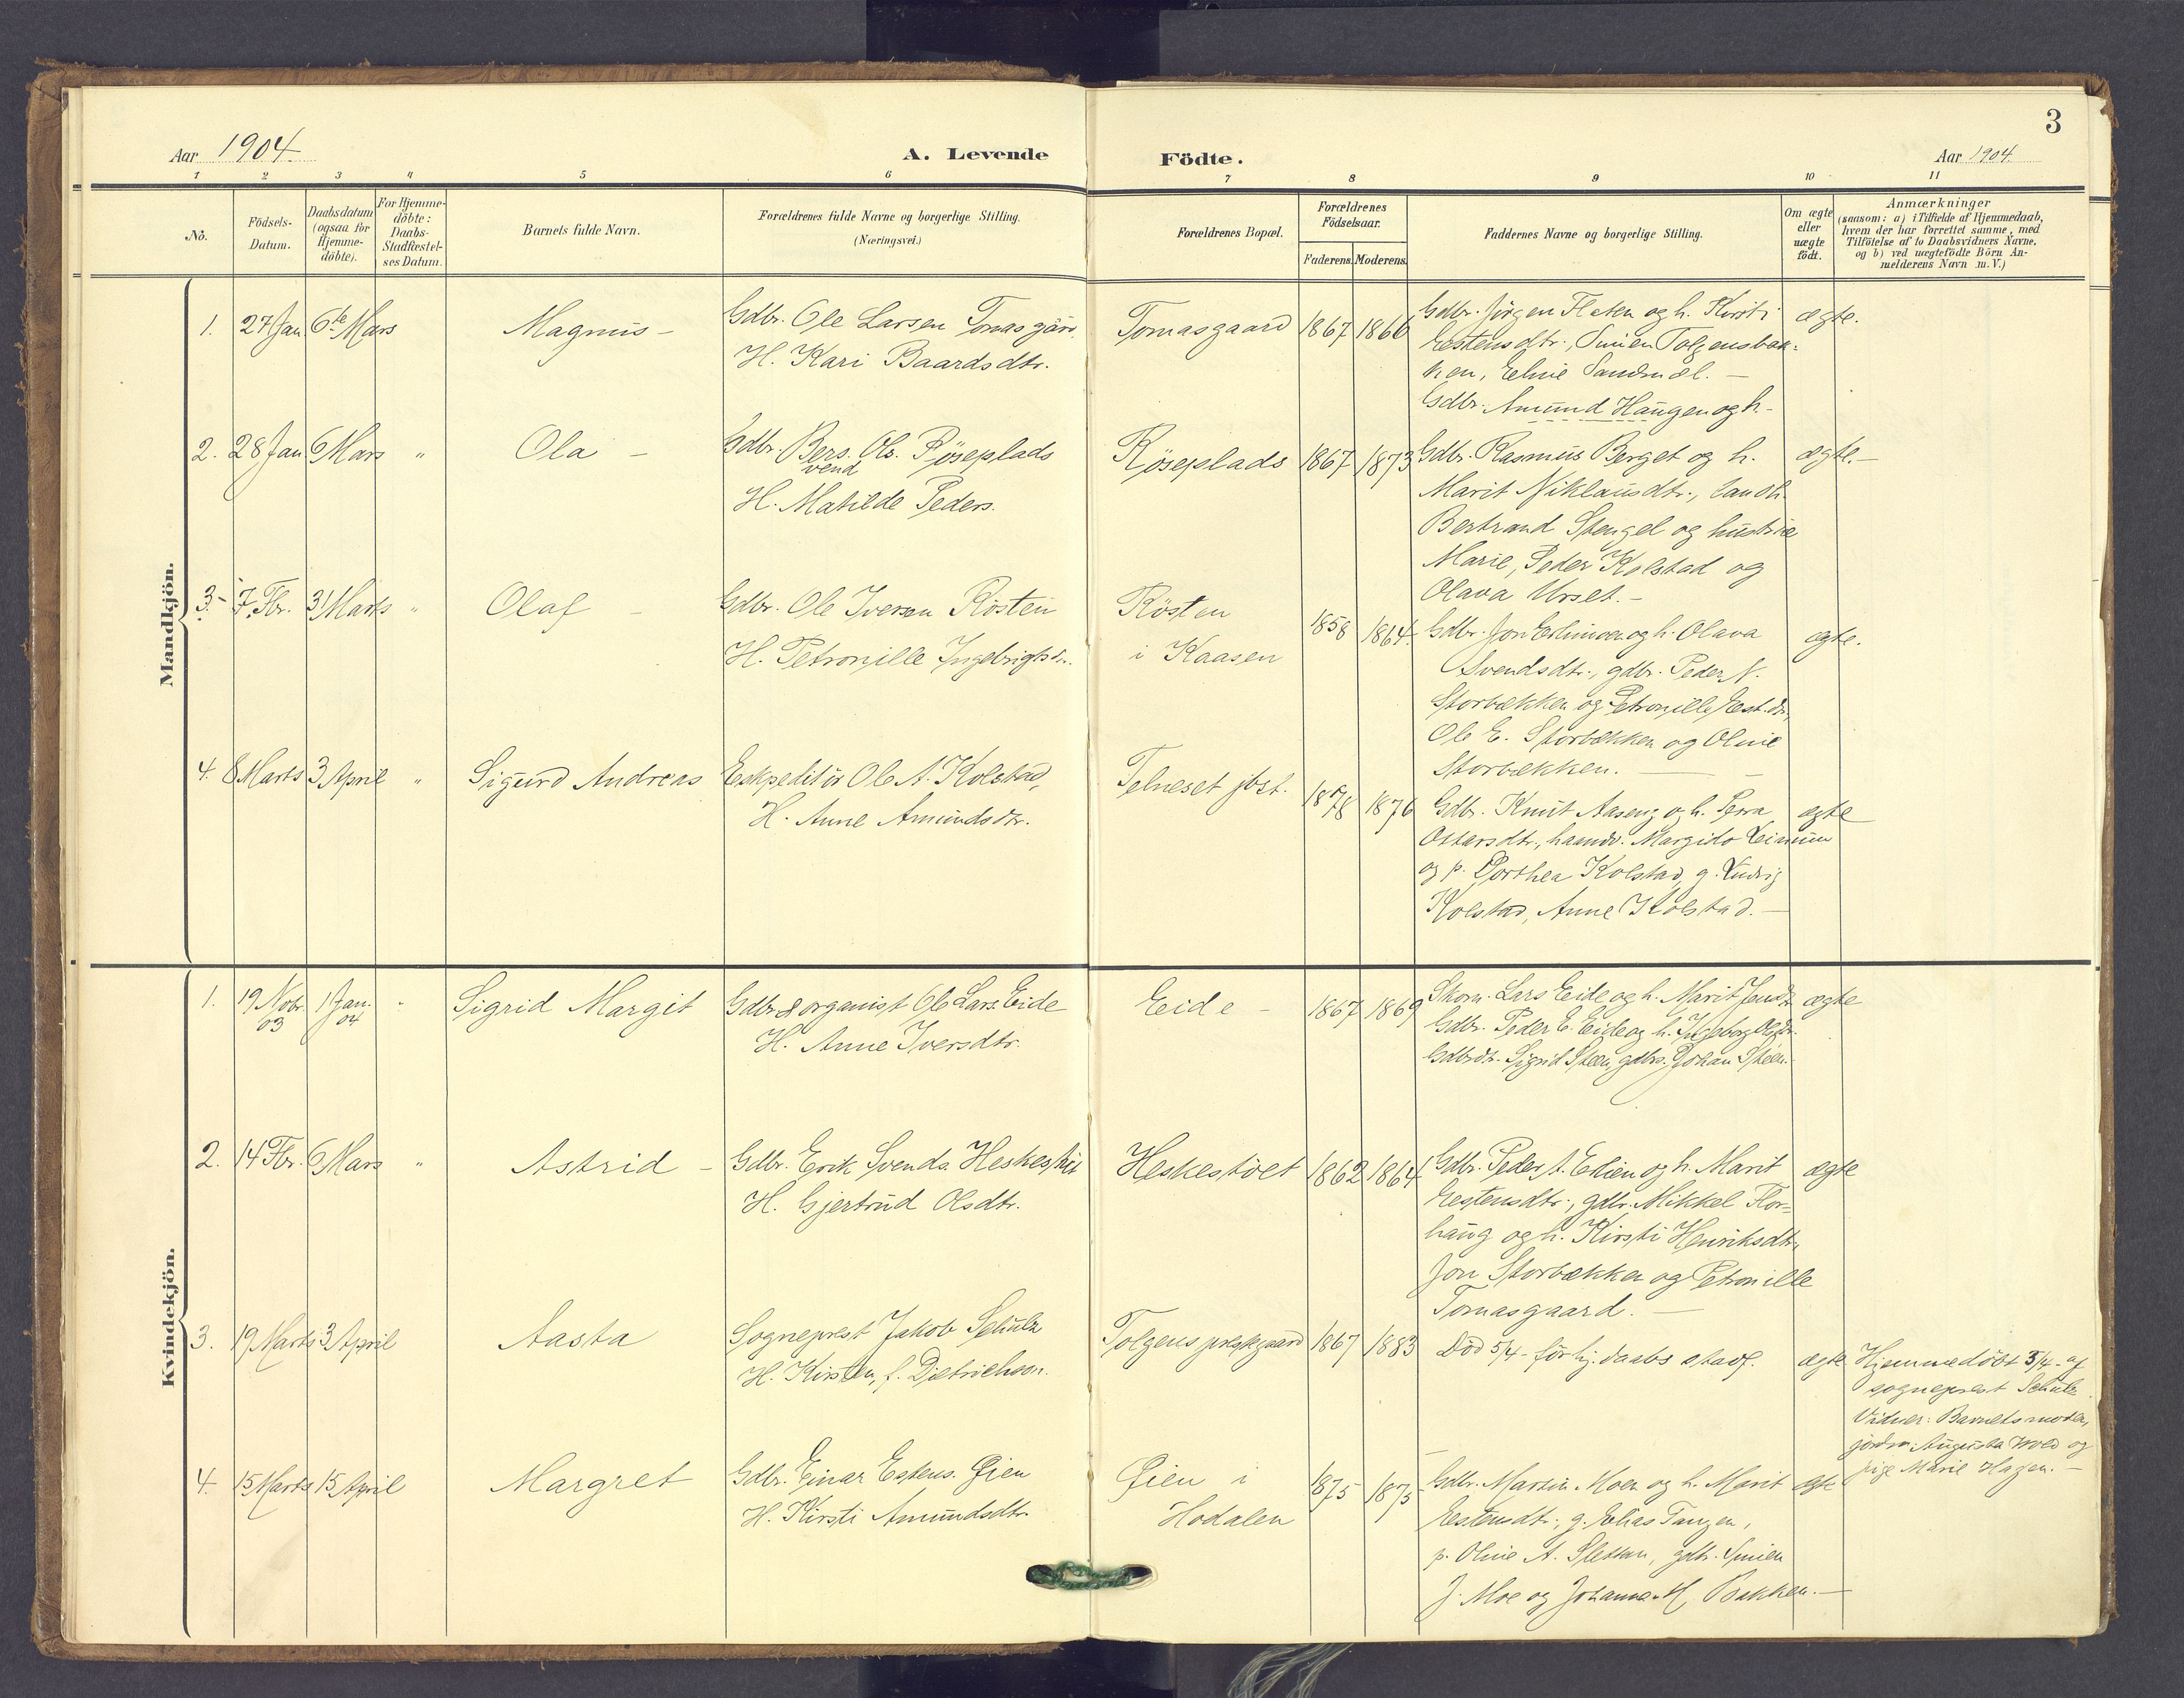 3
Aar 1904.
A. Levende Födte.
Aar 1904.
1 2 3 4 5 6 7 8 9 10 11
No.
Födsels-Datum.
Daabsdatum (ogsaa for Hjemme-döbte).
For Hjemme-döbte: Daabs-Stadfæstel-ses Datum.
Barnets fulde Navn.
Forældrenes fulde Navne og borgerlige Stilling.
(Næringsvei.)
Forældrenes Bopæl.
Forældrenes Födselsaar.
Faderens. Moderens.
Faddernes Navne og borgerlige Stilling.
Om ægte eller uægte födt.
Anmærkninger
(saasom: a) i Tilfælde af Hjemmedaab,
hvem der har forrettet samme, med
Tilföielse af to Daabsvidners Navne,
og b) ved uægtefödte Börn An-
melderens Navn m. V.)
Mandkjön.
1. 27 Jan. 6te Mars Magnus - Gdbr. Ole Larsen Tomasgård.
H. Kari Baardsdtr.
Tomasgaard 1867 1866
Gdbr. Jörgen Flaten og h. Kirsti
Estensdtr., Simen Tolgensbak-
ken, Eline Sandmæl. -
Gdbr. Amund Haugen og h. -
ægte.
2. 28 Jan. 6 Mars " Ola - Gdbr. Bers. Ols. Röseplads
vend
H. Matilde Peders.
Röseplads 1867 1873
Gdbr. Rasmus Berget og h.
Marit Niklausdtr., landh.
Bertrand Stengel og hustru
Marie, Peder Kolstad og
Olava Urset. -
ægte. -
3. - 7. Fbr. 31 Marts " Olaf - Gdbr. Ole Iversen Rösten
H. Petronille Ingebrigtsdtr.
Rösten
i Kaasen
1858 1864.
Gdbr. Jon Erlimoen og h. Olava
Svendsdtr., gdbr. Peder N.
Storbækken og Petronille Est.dtr.,
Ole E. Storbækken og Oline
Storbækken. -
ægte.
4. 8 Marts 3 April " Sigurd Andreas Ekspeditör Ole A. Kolstad,
H. Anne Amundsdtr.
Telneset jbst. 1878 1876
Gdbr. Knut Aaseng og h. Pera
Ostarsdtr., haandv. Margido Leirmun
og p. Dorthea Kolstad, g. Ludvig
Kolstad, Anne Kolstad. -
ægte
Kvindekjön.
1. 19 Novbr. 03 1 Jan. 04 " Sigrid Margit Gdbr & organist Ole Lars. Eide
H. Anne Iversdtr.
Eide - 1867 1869
Skom. Lars Eide og h. Marit Jonsdtr.
Gdbr. Peder E. Eide og h. Ingeborg Olsdtr.
Gdbrdtr. Sigrid Steen, gdbrs. Johan Steen.
ægte
2. 14 Fbr. 6 Mars " Astrid - Gdbr. Erik Svends. Heskestöet
H. Gjertrud Olsdtr.
Heskestöet 1862 1864
Gdbr. Peder A. Erlien og h. Marit
Estensdtr., gdbr. Mikkel Flor-
haug og h. Kirsti Henriksdtr.,
Jon Storbækken og Petronille
Tomasgaard. -
ægte
3. 19 Marts 3 April Aasta Sogneprest Jakob Schulz
H. Kirsten, f. Dietrichson.
Tolgens prestegaard 1867 1883
Död 5/4 - för hj. daabs stadf.
ægte
Hjemmedöbt 3/4 - af
sogneprest Schulz.
Vidner: Barnets moder,
jordm. Augusta Wold og
pige Marie Hagen. -
4. 15 Marts 15 April Margret Gdbr. Einar Estens. Öien
H. Kirsti Amundsdtr.
Öien i
Hodalen
1875 1875
Gdbr. Martin Moen og h. Marit
Estensdtr., g. Elias Tangen,
p. Oline A. Sletten, gdbr. Simen
J. Moe og Johanna M. Bakken. -
ægte